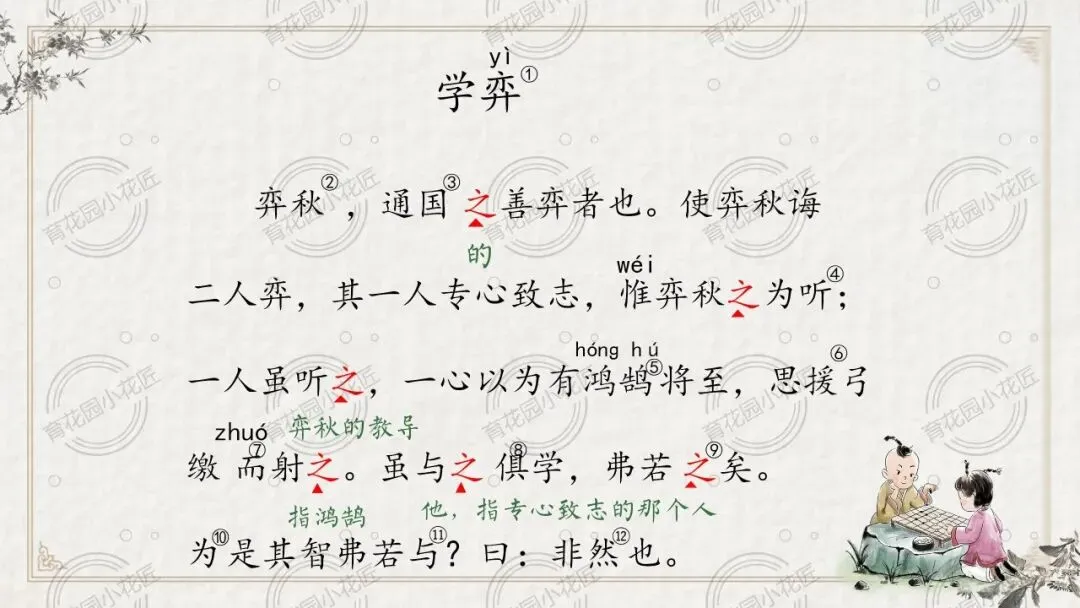 yì
学弈①
弈秋②，通国③之善弈者也。使弈秋诲
的
wéi
二人弈，其一人专心致志，惟弈秋之为听④；
hóng hú
一人虽听之，一心以为有鸿鹄⑤将至，思援弓⑥
zhuó 弈秋的教导
缴⑦而射之。虽与之俱⑧学，弗若⑨之矣。
指鸿鹄 他，指专心致志的那个人
为⑩是其智弗若与⑪？曰：非然⑫也。
育花园小花匠